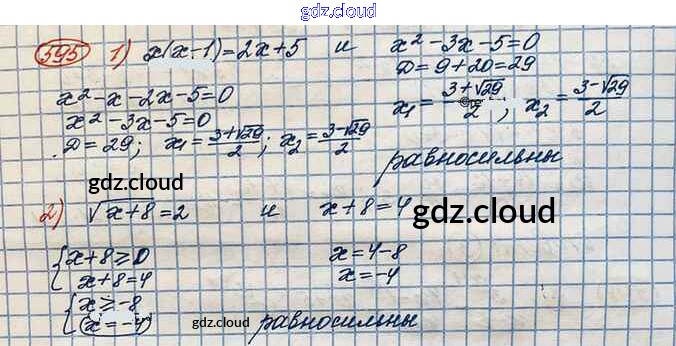 gdz.cloud
595 1) x(x-1)=2x+5 и x²-3x-5=0
D=9+20=29
x²-x-2x-5=0
x²-3x-5=0
x₁=(3+√29)/2; x₂=(3-√29)/2
D=29; x₁=(3+√29)/2; x₂=(3-√29)/2
равносильны
gdz.cloud
2) √x+8=2 и x+8=4
gdz.cloud
{x+8≥0
x+8=4
x=4-8
x=-4
{x≥-8
(x=-4)
gdz.cloud
равносильны